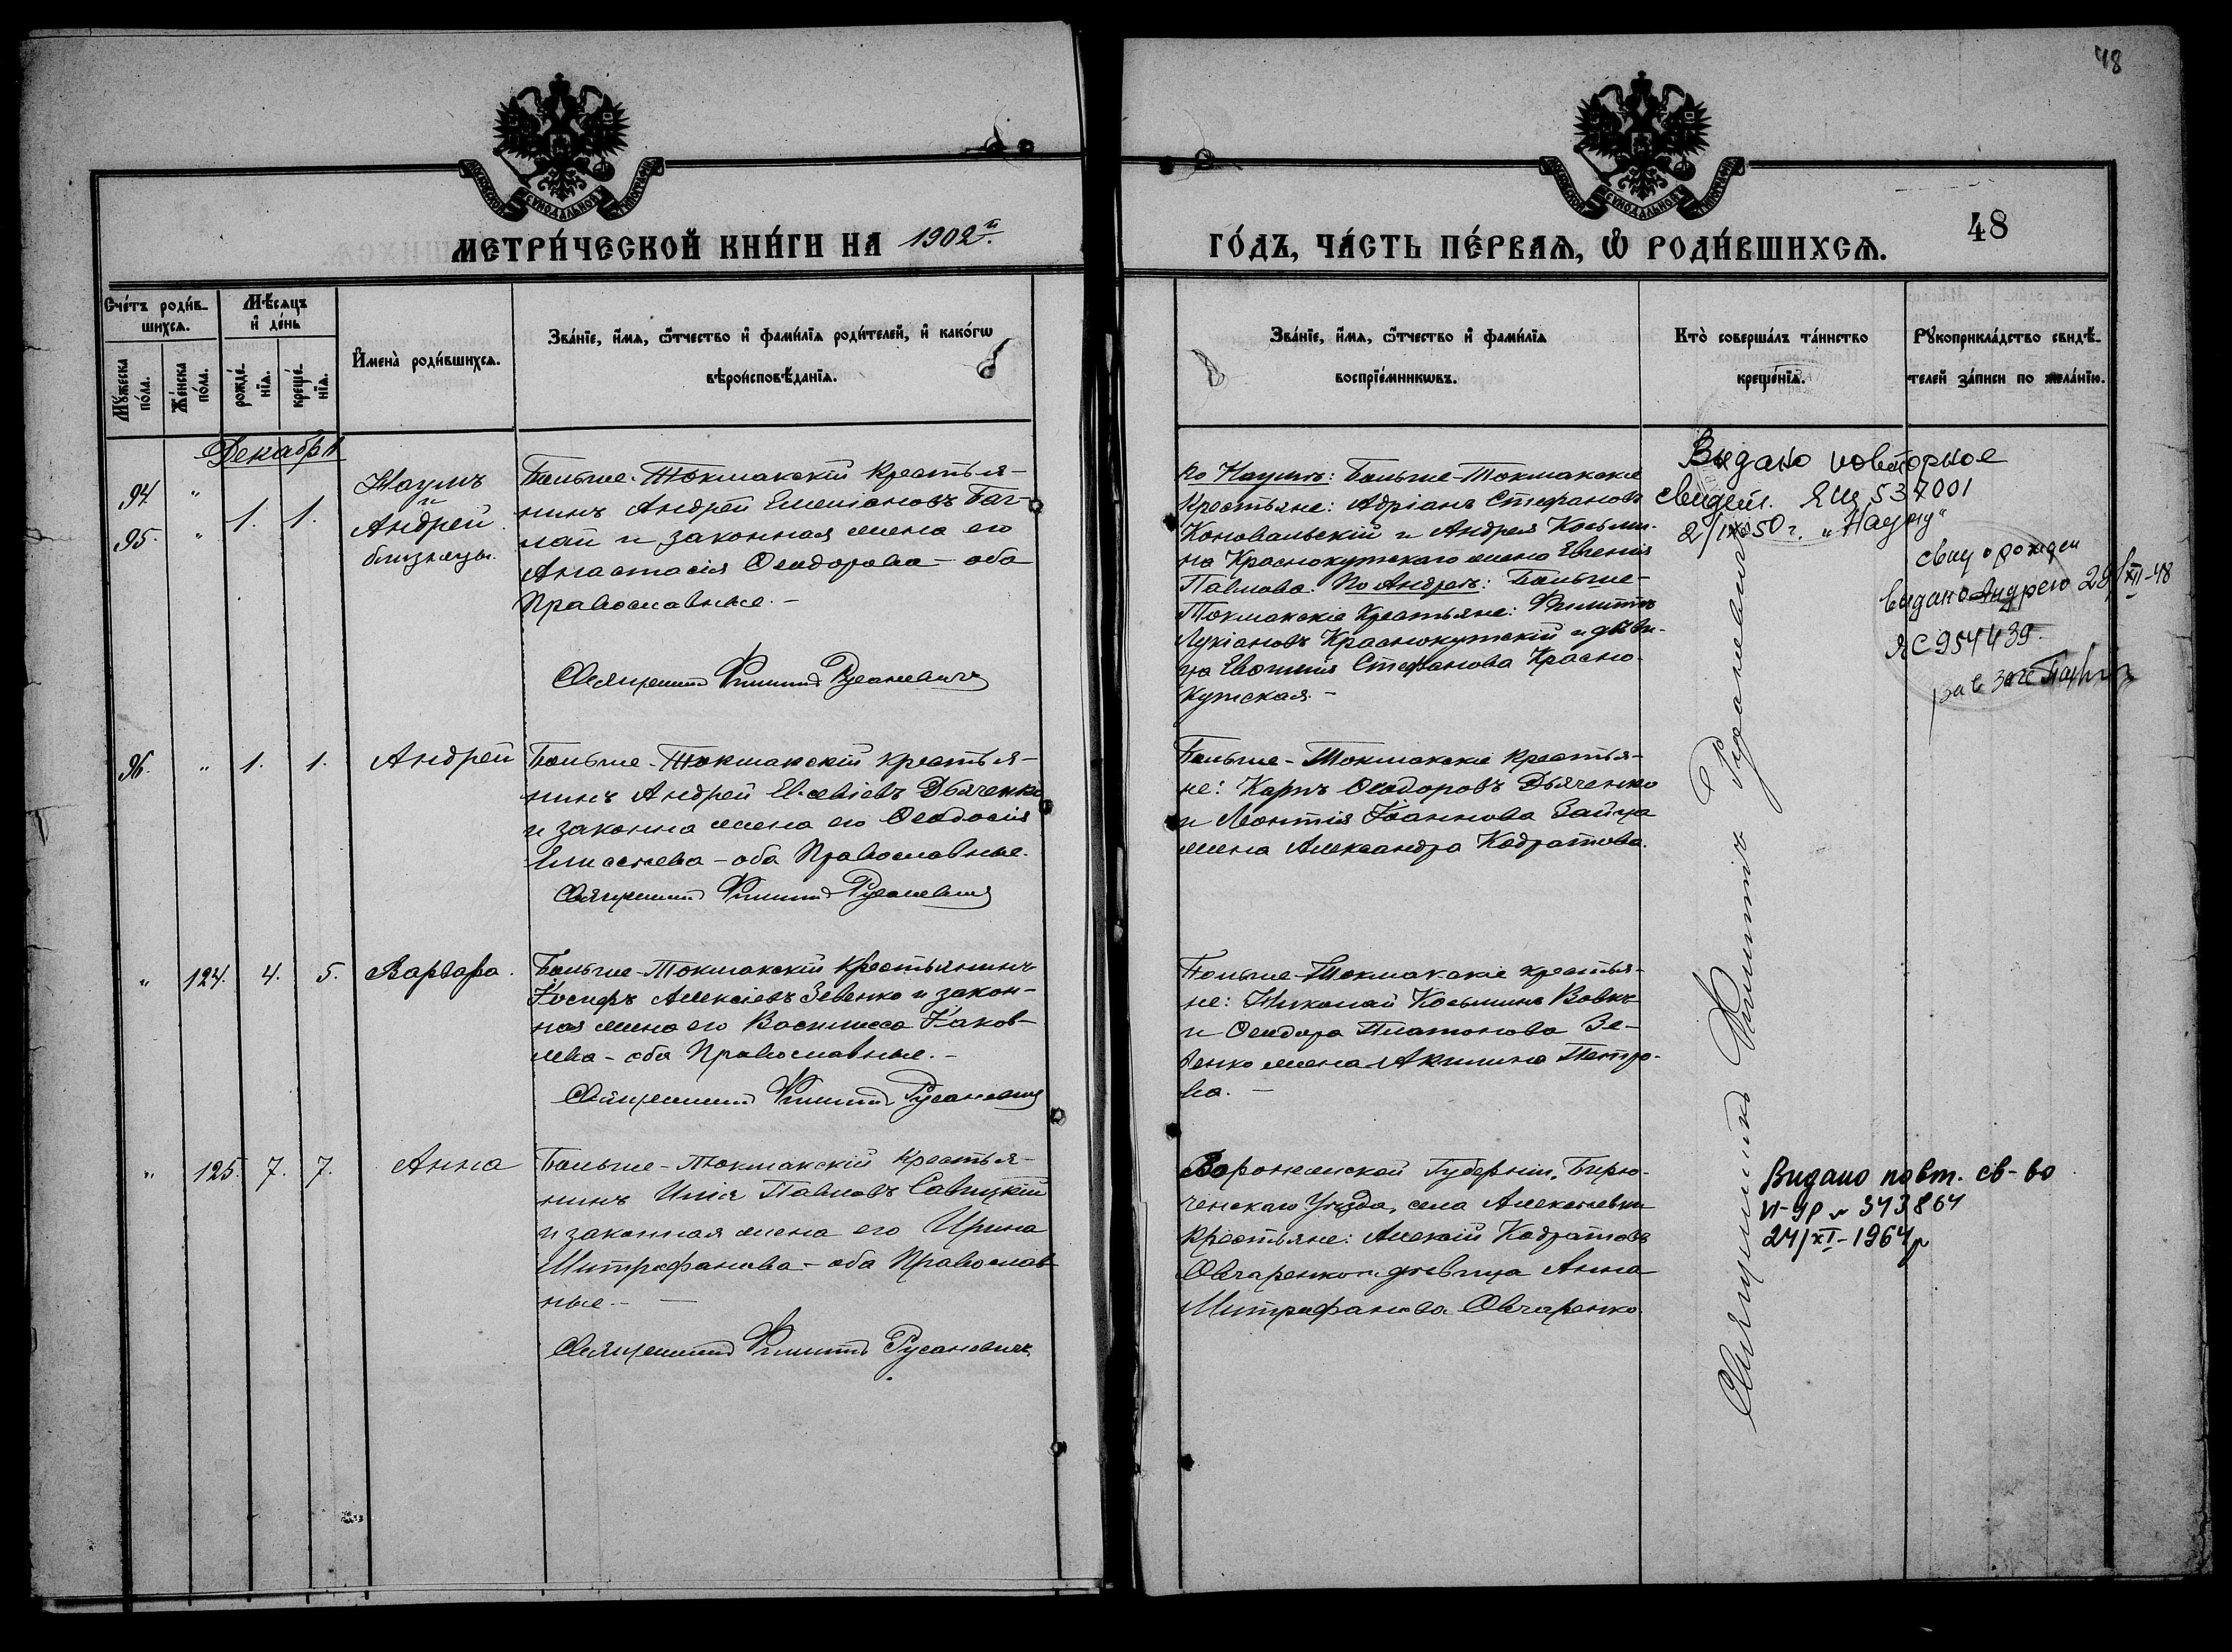 48
МЕТРИ́ЧЕСКОЙ КНИ́ГИ НА 1902й.
ГО́ДЪ, ЧА́СТЬ ПЕ́РВАЯ, Ѿ РОДИ́ВШИХСЯ.
48
Сче́тъ роди́в-
шихся.
Мꙋ́жеска по́ла.
Же́нска по́ла.
Мѣ́сяцъ
и҆ де́нь
рожде́-
нїя.
креще́-
нїя.
И҆мена̀ роди́вшихся.
Зва́нїе, и҆́мя, ѻ҆́тчество и҆ фами́лїя роди́телей, и҆ како́гѡ
вѣроисповѣ́данїя.
Зва́нїе, и҆́мя, ѻ҆́тчество и҆ фами́лїя
воспрїе́мникѡвъ.
Кто̀ соверша́лъ та́инство
креще́нїя.
Рꙋкоприкла́дство свидѣ́-
телей за́писи по жела́нїю.
Декабря
94 "
95. "
1. 1.
Наумъ
и
Андрей
близнецы.
Больше-Токмакскій крестья-
нинъ Андрей Емеліановъ Баг-
лай и законная жена его
Анастасія Ѳеодорова - оба
Православные. -
Священникъ Филиппъ Русаневичъ
По Наумѣ: Больше-Токмакскіе
Крестьяне: Адріанъ Стефановъ
Коновальскій и Андрея Косьми-
на Краснокутскаго жена Евгенія
Павлова. По Андреѣ: Больше-
Токмакскіе Крестьяне: Филиппъ
Лукіановъ Краснокутскій и дѣви-
ца Евфимія Стефанова Красно-
кутская. -
Видано повторное
свидет. ЯШ 537001
2/IX 50 г. "Науму"
свид о рожден
видано Андрею 29/XII-48
ЯС 954439.
Священникъ Филиппъ Русаневичъ
96. " 1. 1.
Андрей
Больше-Токмакскій крестья-
нинъ Андрей Евсевіевъ Дьяченко
и законна жена его Ѳеодосія
Елисѣева - оба Православные.
Священникъ Филиппъ Русаневичъ
Больше-Токмакскіе крестья-
не: Карпъ Ѳеодоровъ Дьяченко
и Леонтія Іоаннова Зайца
жена Александра Кодратова.
" 124. 4. 5.
Варвара.
Больше-Токмакскій крестьянинъ
Іосифъ Алексіевъ Зевенко и закон-
ная жена его Василисса Іаков-
лева - оба Православные. -
Священникъ Филиппъ Русаневичъ
Больше-Токмакскіе крестья-
не: Николай Косьминъ Вовкъ
и Ѳеодора Платонова Зе-
венко жена Акилина Петро-
ва. -
" 125. 7. 7.
Анна
Больше-Токмакскій крестья-
нинъ Илія Павловъ Савицкій
и законная жена его Ирина
Митрофанова - оба Православ-
ные. -
Священникъ Филиппъ Русаневичъ.
Воронежской Губерніи, Бирю-
ченскаго Уѣзда, села Алексѣевки
Крестьяне: Алексій Кодратовъ
Овчаренко и дѣвица Анна
Митрофанова Овчаренко.
Видано повт. св-во
VI-УР № 343864
24/XI-1964р